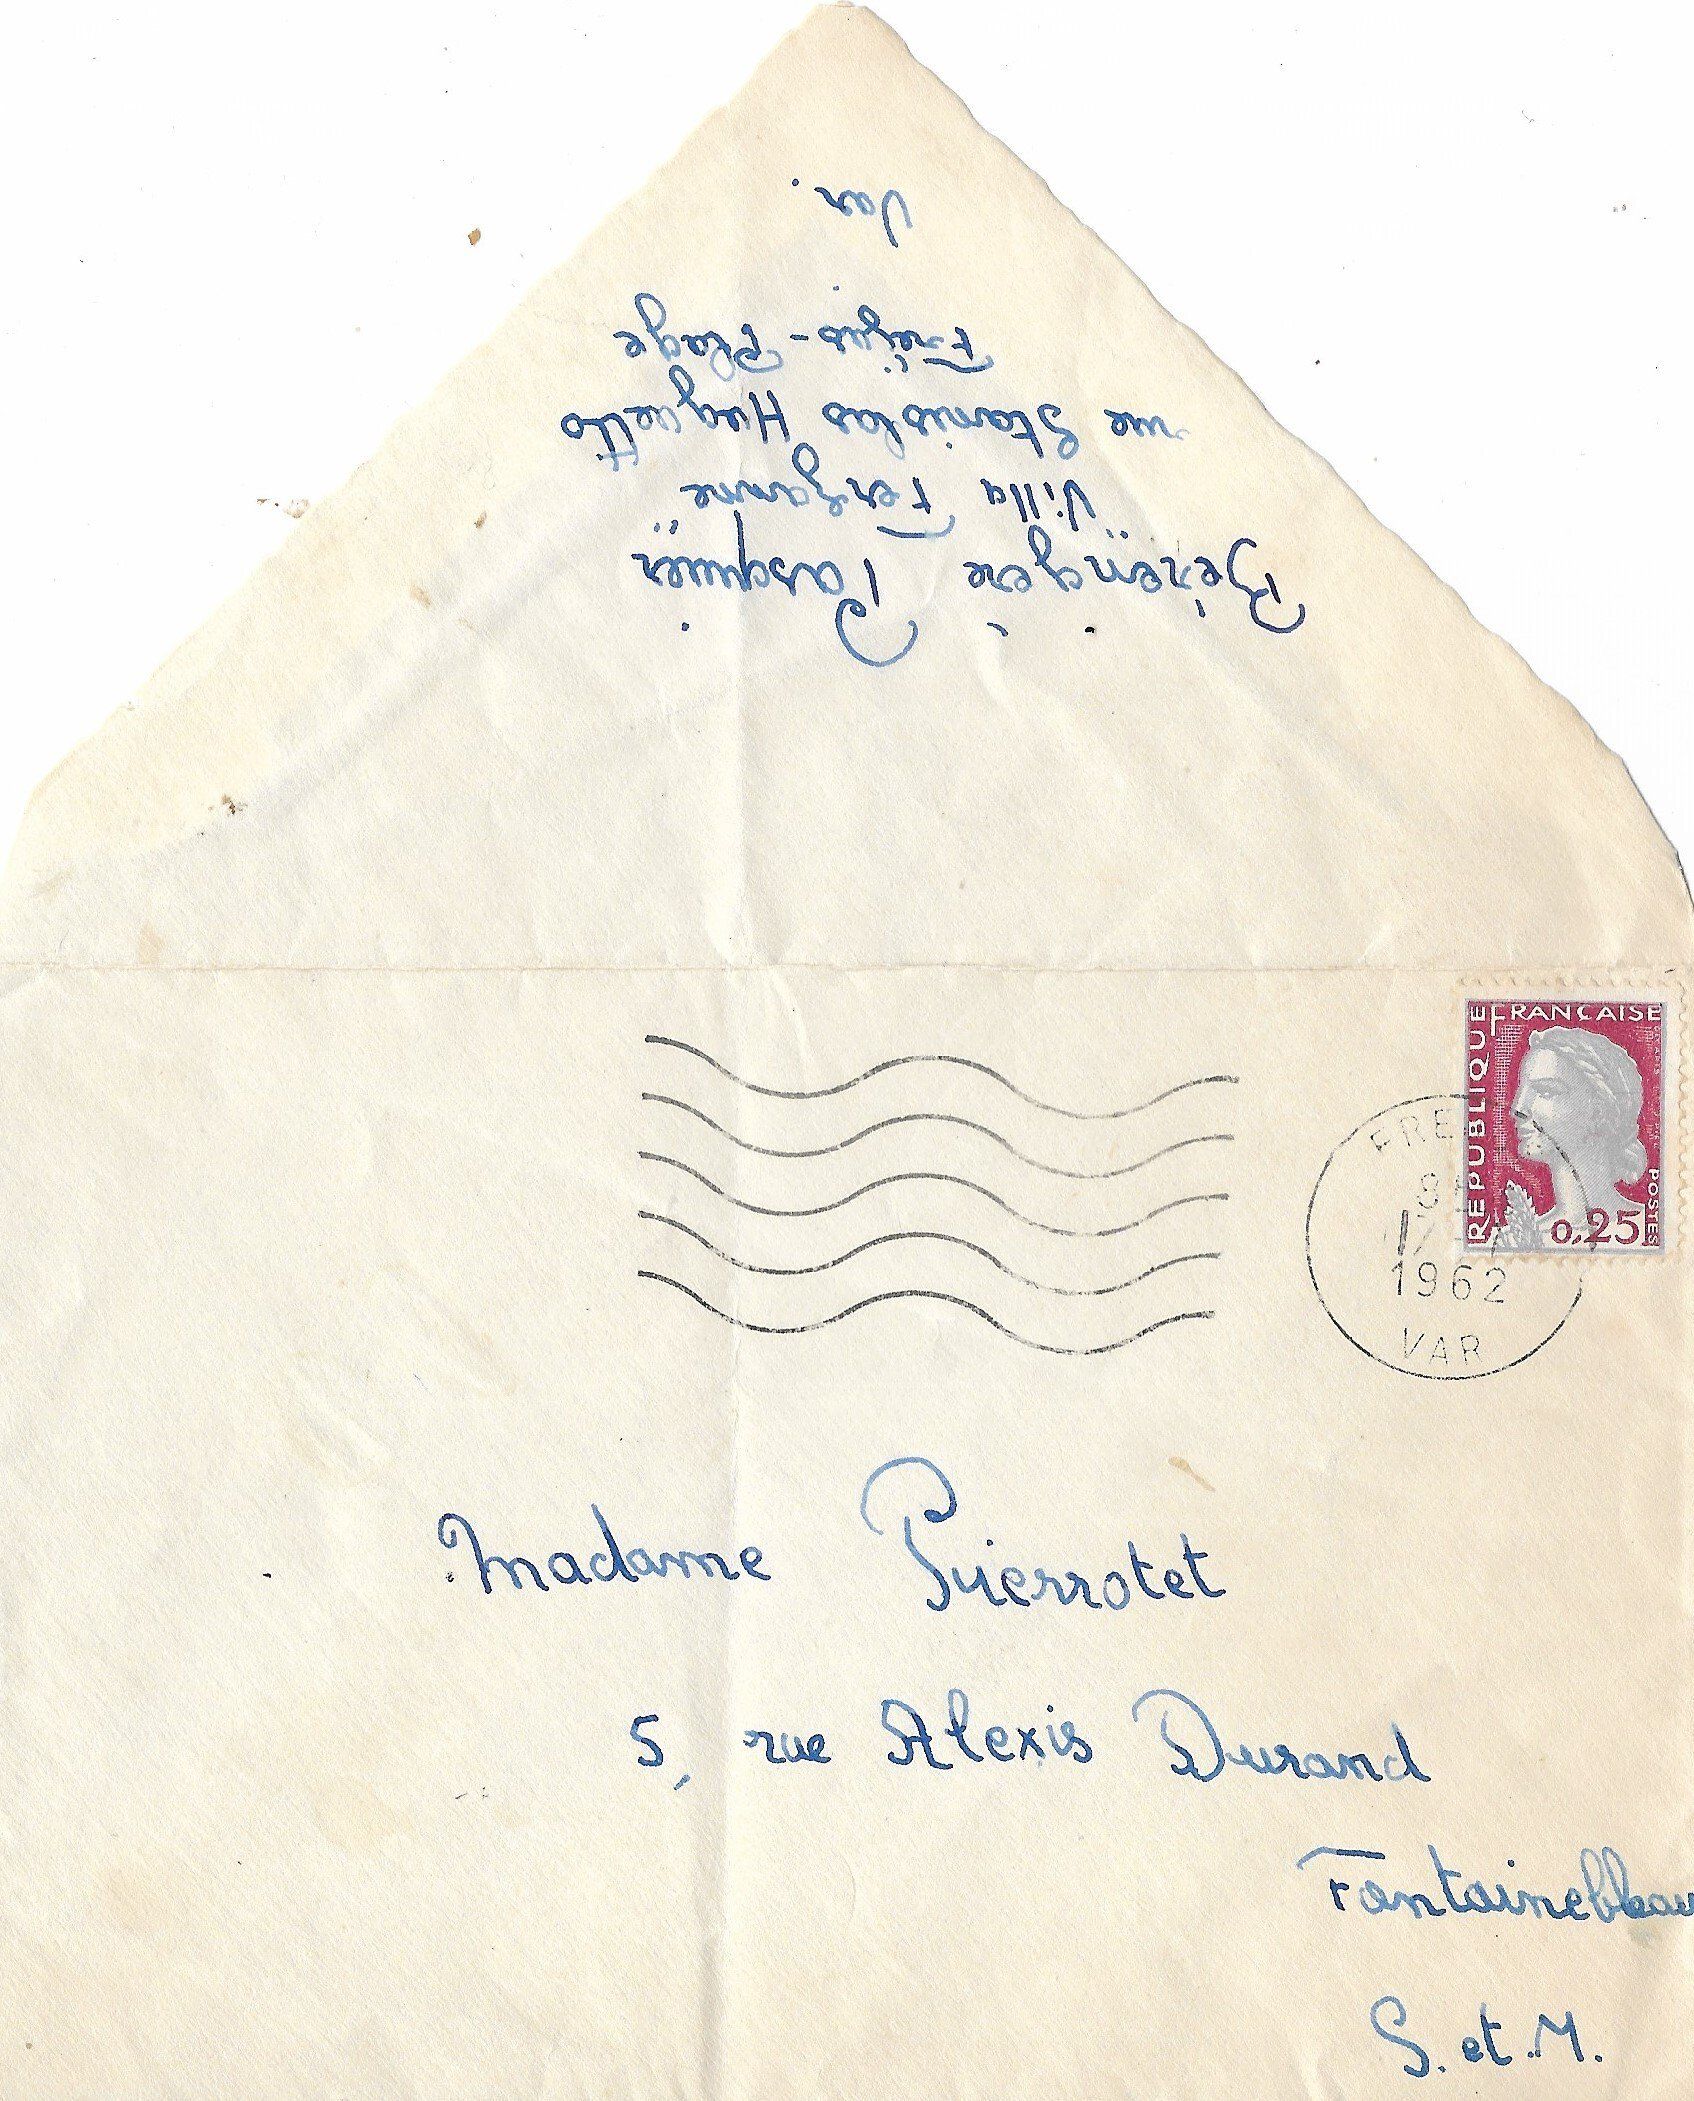 Bérengère Pasquier
"Villa Ferzanne"
rue Stanislas Huguetto
Fréjus-Plage
Var.
RÉPUBLIQUE FRANÇAISE
POSTES
0,25
FRE
8
17
1962
VAR
Madame Puierrotet
5, rue Alexis Durand
Fontainebleau
S. et M.